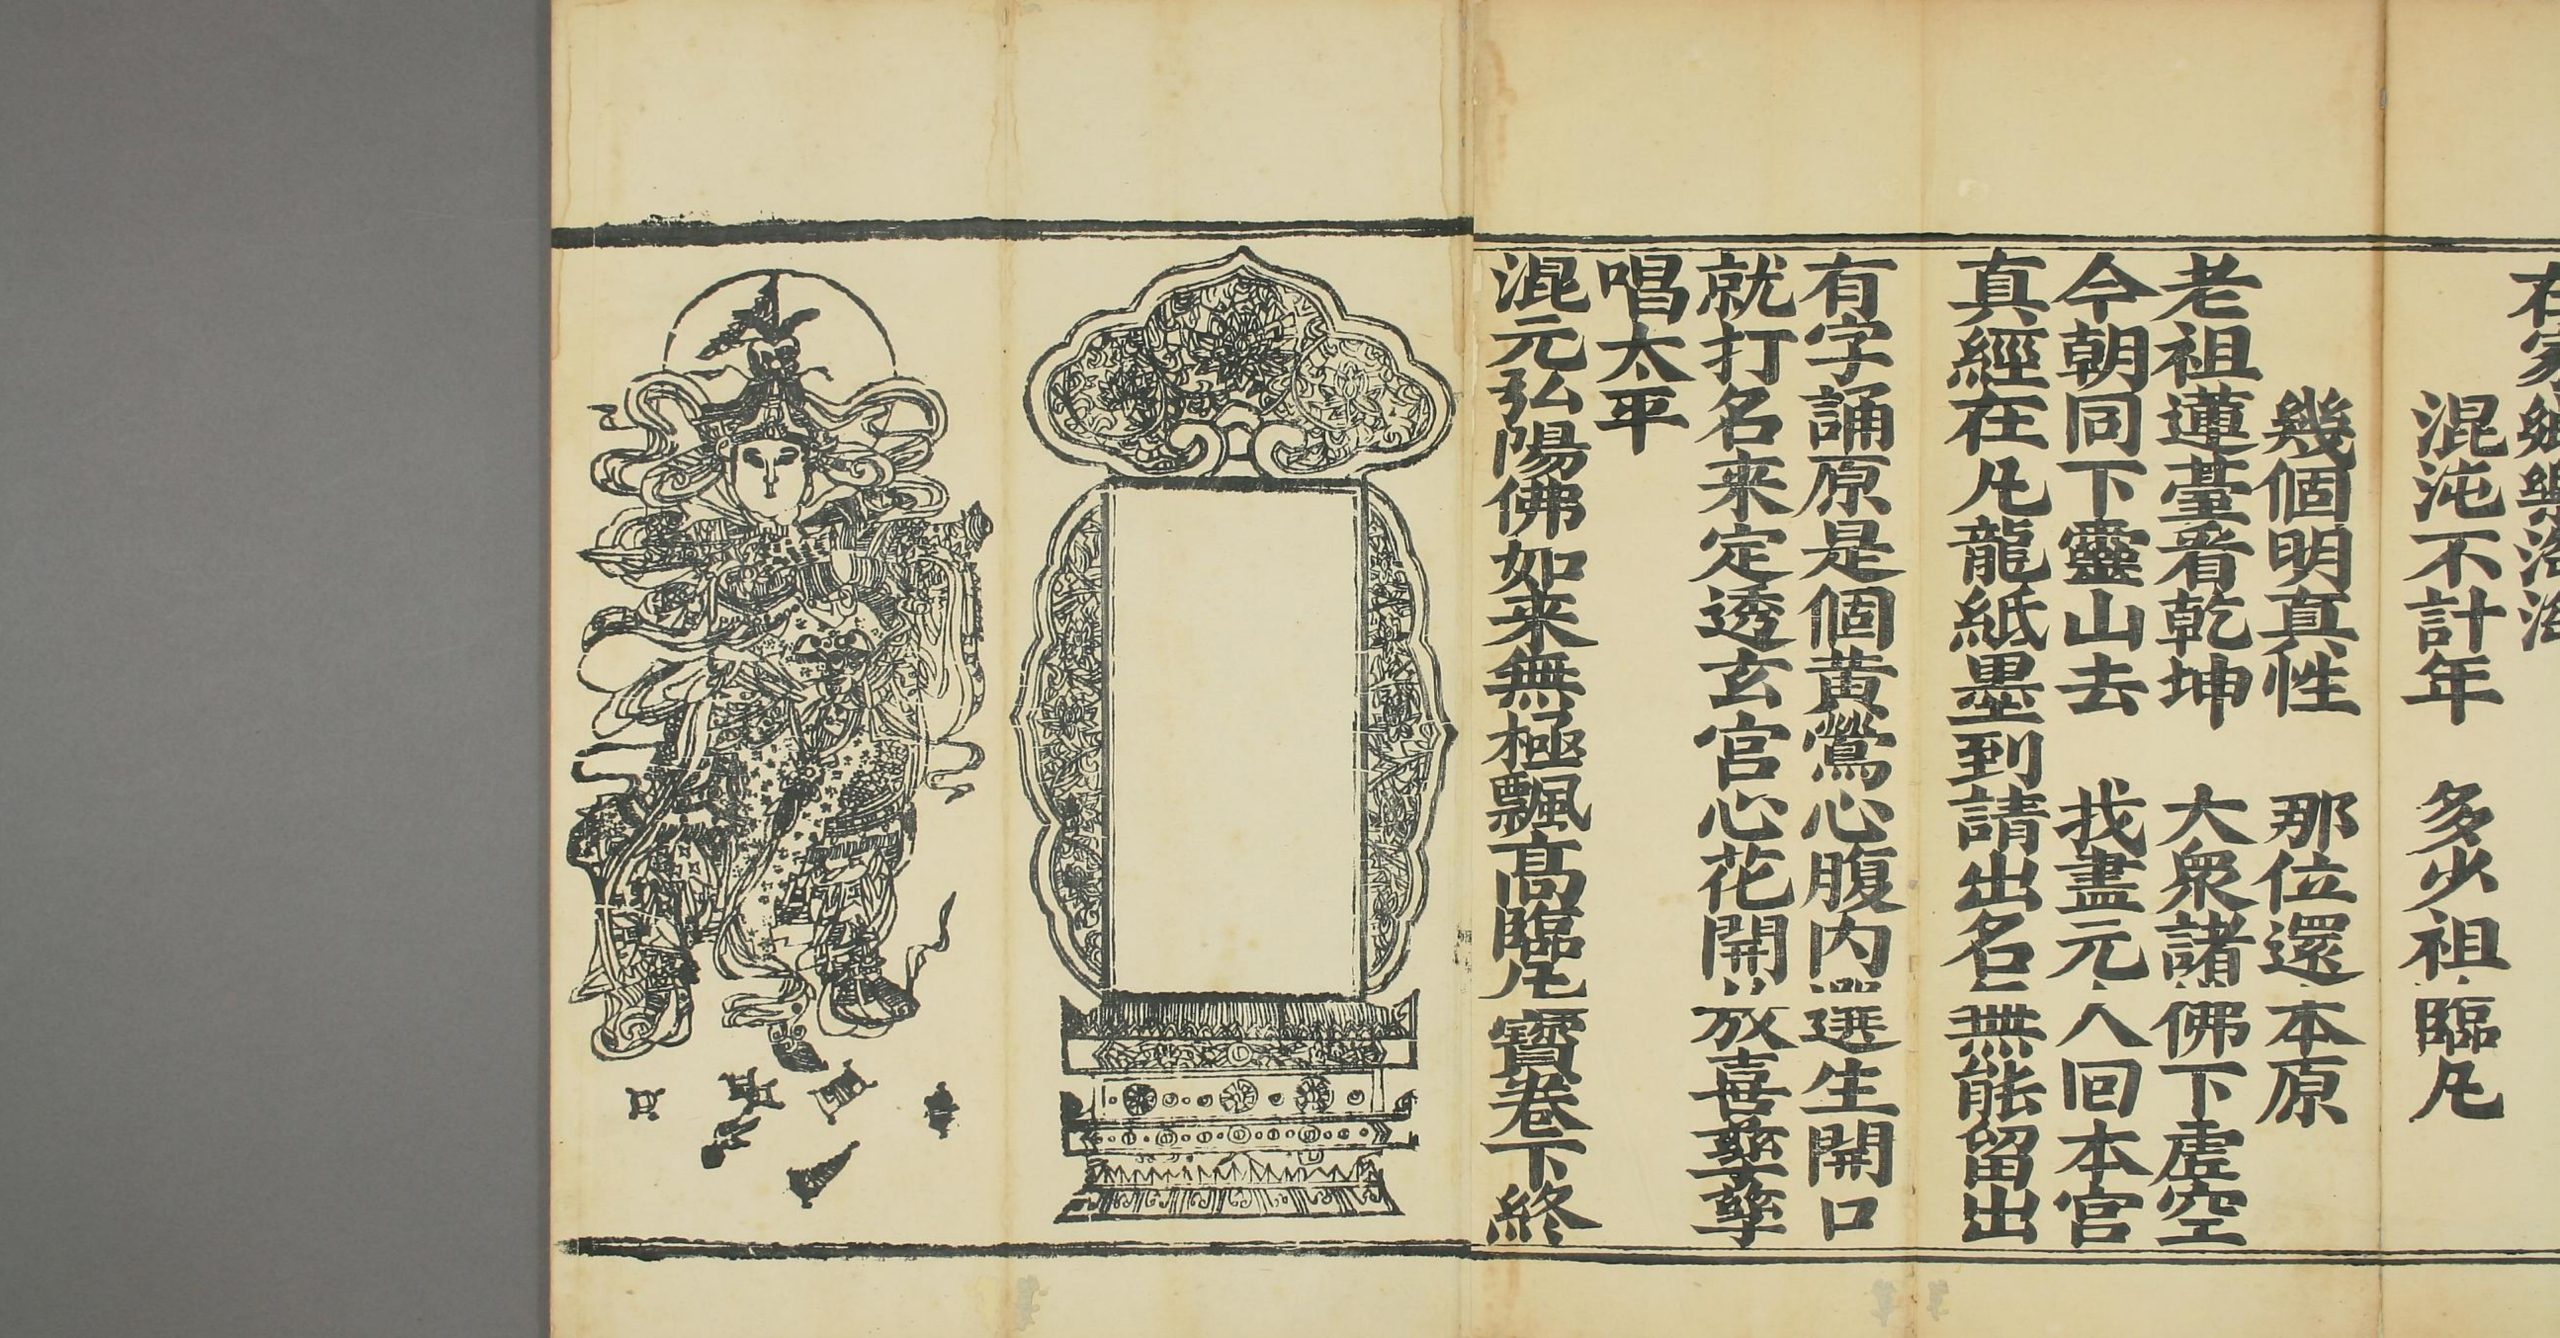 在家鄉樂
混沌不計年　多少祖臨凡
幾個明真性　那位還本原
老祖蓮臺看乾坤　大衆諸佛下虛空
今朝同下靈山去　找盡元人回本宮
真經在凡龍紙墨到請出名無能留出
有字誦原是個黃鶯心腹内選生開口
就打名来定透玄宮心花開放喜孳孳
唱太平
混元弘陽佛如来無極飄高臨凡寶卷下終